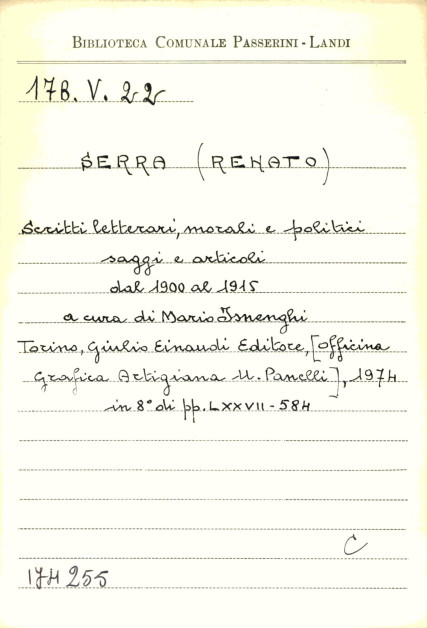 BIBLIOTECA COMUNALE PASSERINI - LANDI
178. V. 22
SERRA (RENATO)
Scritti letterari, morali e politici
saggi e articoli
dal 1900 al 1915
a cura di Mario Isnenghi
Torino, Giulio Einaudi Editore, [Officina
Grafica Artigiana U. Panelli], 1974
in 8° di pp. LXXVII - 584
C
174255